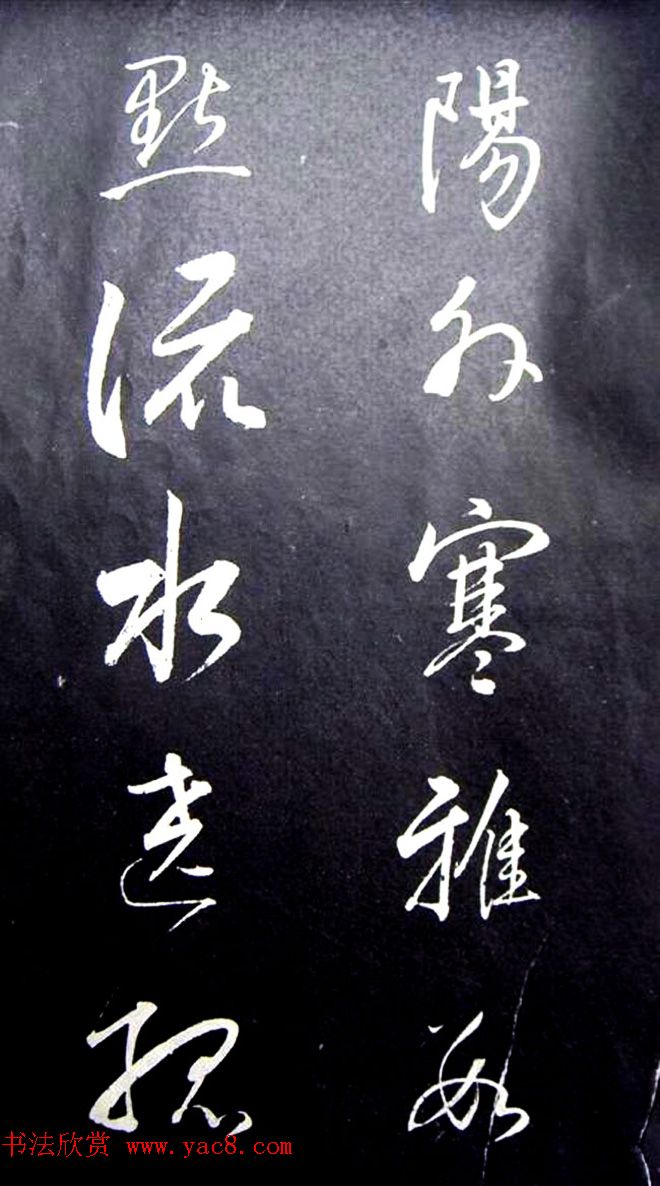 陽外寒雅數
點流水遶孤
书法欣赏 www.yac8.com